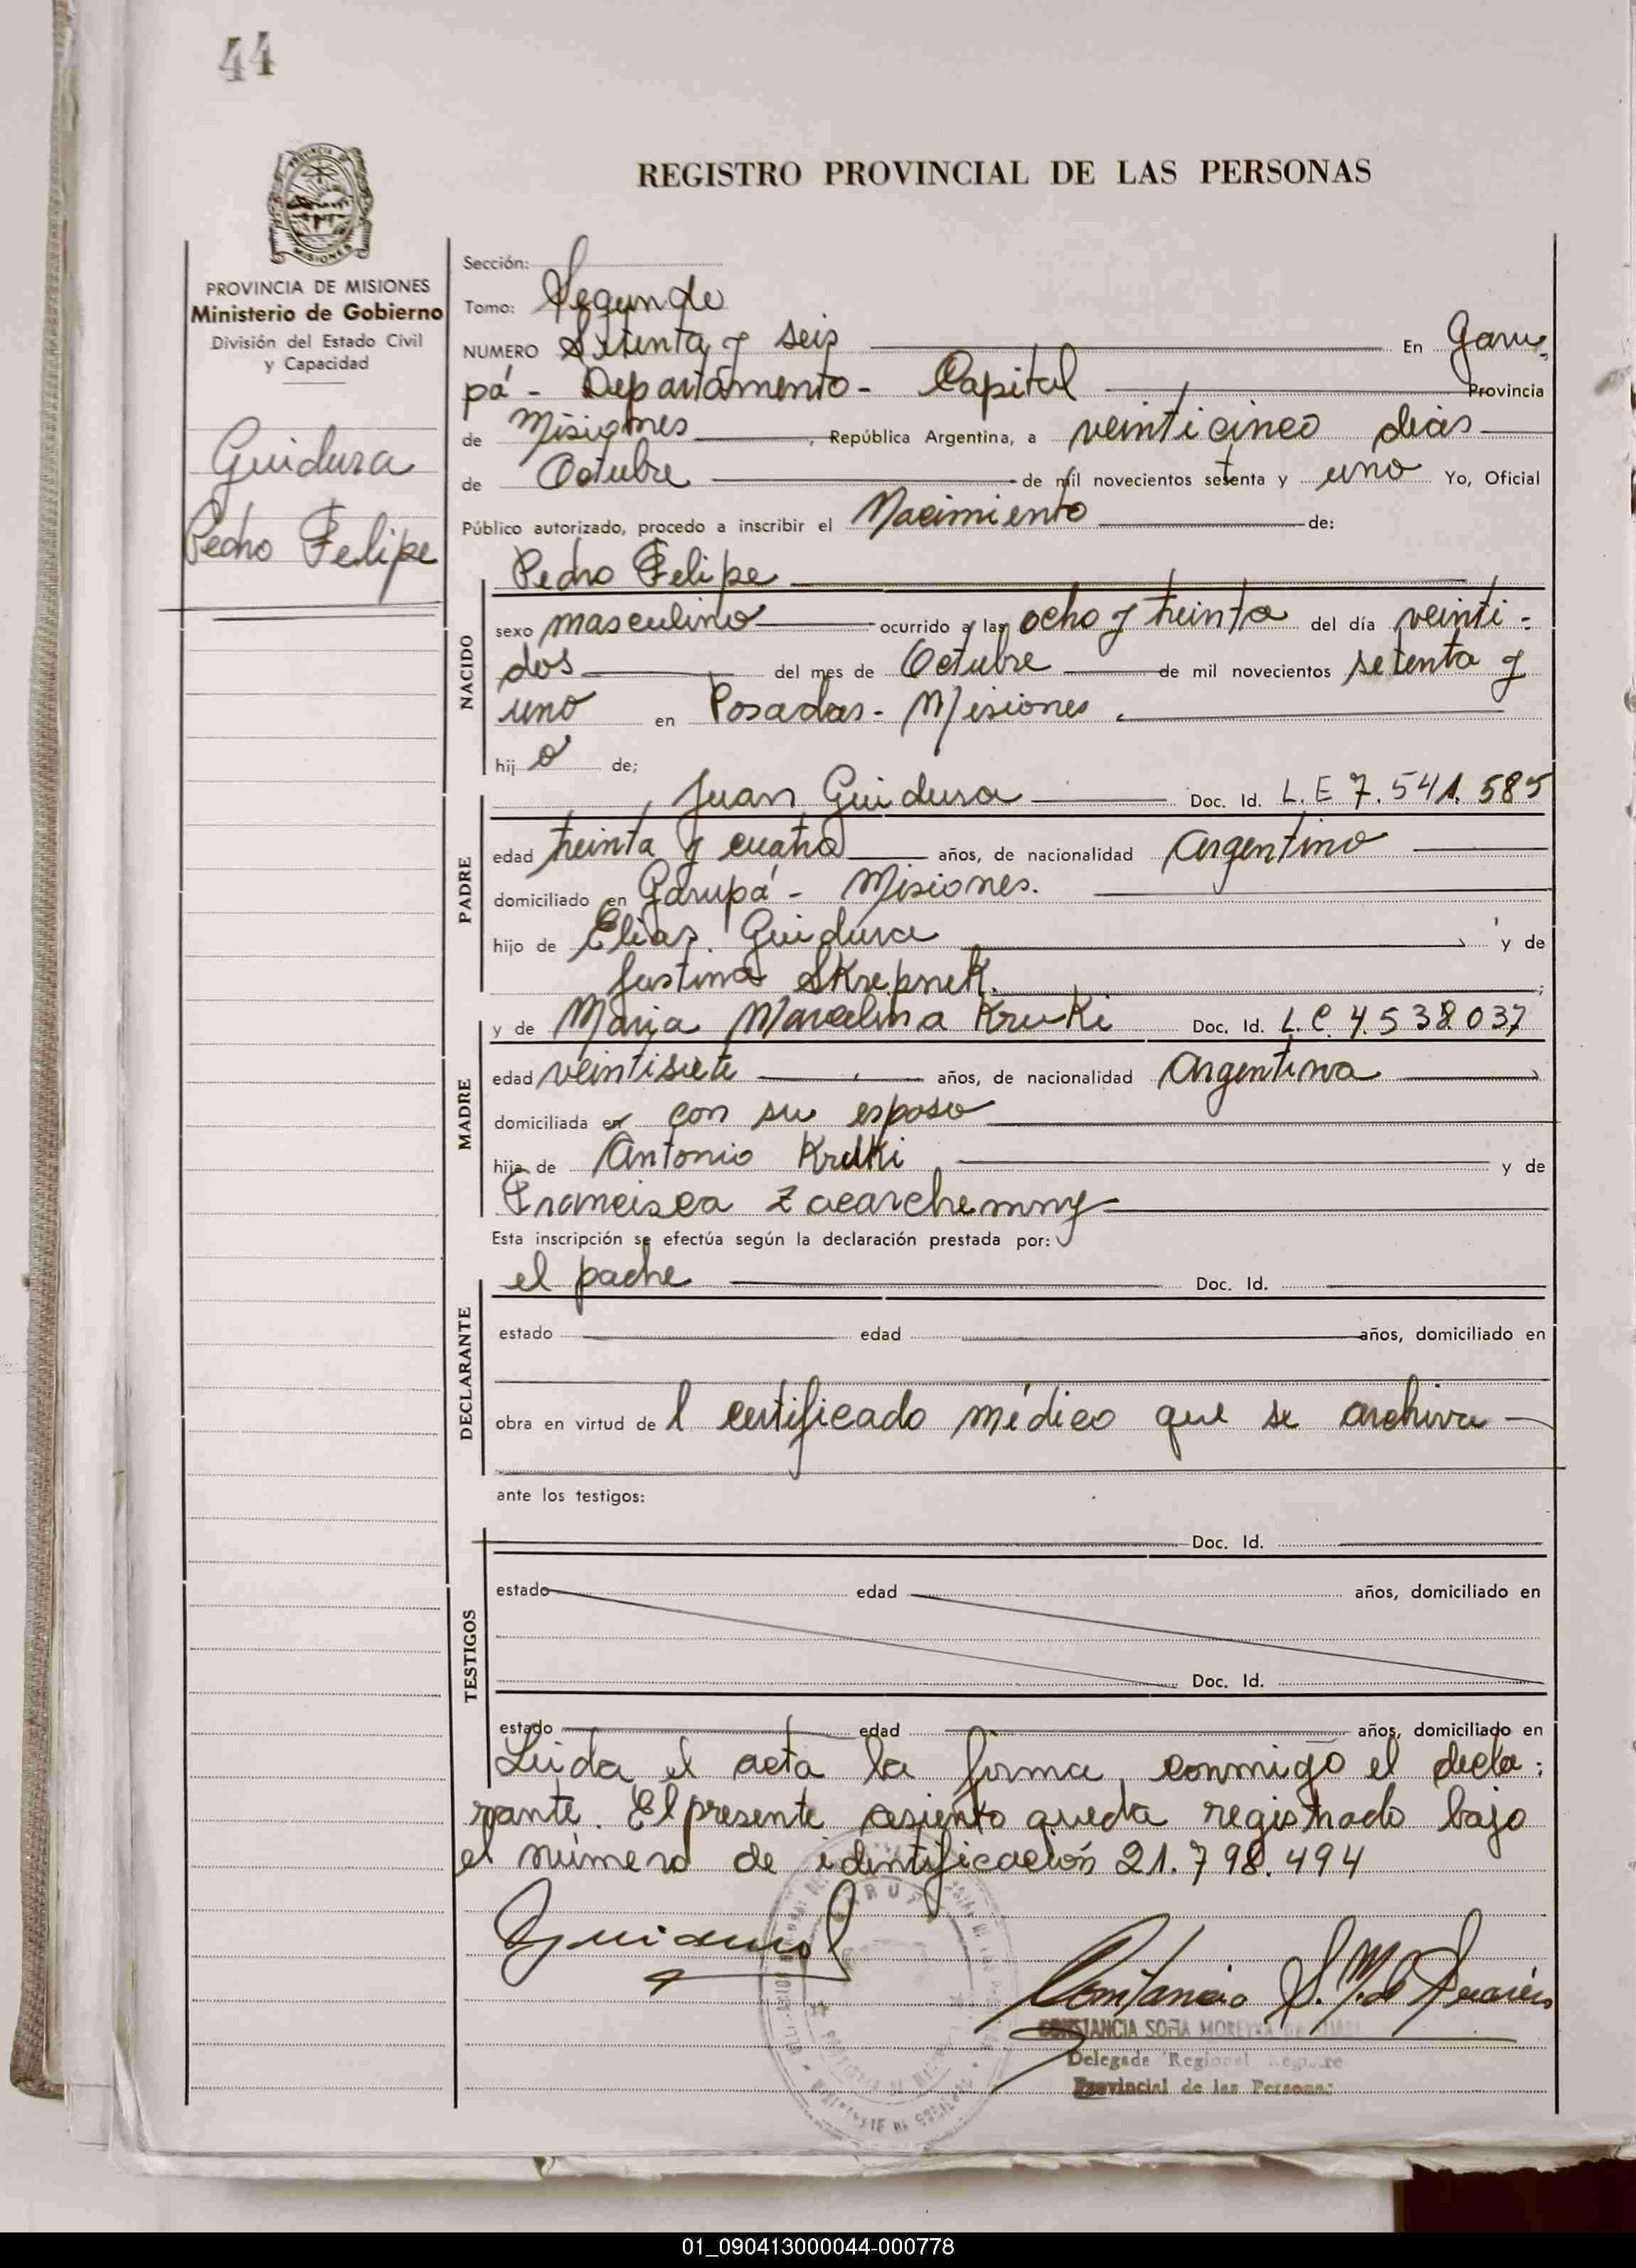 44
REGISTRO PROVINCIAL DE LAS PERSONAS
PROVINCIA DE MISIONES
Ministerio de Gobierno
División del Estado Civil
y Capacidad
Guidura
Pedro Felipe
Sección:
Tomo: Segundo
NUMERO Setenta y seis En Garu-
pá - Departamento - Capital Provincia
de Misiones, República Argentina, a veinticinco dias
de Octubre de mil novecientos setenta y uno Yo, Oficial
Público autorizado, procedo a inscribir el Nacimiento de:
NACIDO
Pedro Felipe
sexo masculino ocurrido a las ocho y treinta del día veinti-
dos del mes de Octubre de mil novecientos setenta y
uno en Posadas - Misiones.
hij o de;
PADRE
Juan Guidura Doc. Id. L.E 7.541.585
edad treinta y cuatro años, de nacionalidad Argentino
domiciliado en Garupá - Misiones.
hijo de Elias Guidura y de
Justina Skrepnek.
MADRE
y de Maria Marcelina Kruki Doc. Id. L.C. 4.538.037
edad veintisiete años, de nacionalidad Argentina
domiciliada en con su esposo
hija de Antonio Kruki y de
Francisca Zacarchemny
Esta inscripción se efectúa según la declaración prestada por:
DECLARANTE
el padre Doc. Id.
estado edad años, domiciliado en
obra en virtud de l certificado médico que se archiva
ante los testigos:
TESTIGOS
Doc. Id.
estado edad años, domiciliado en
Doc. Id.
estado edad años, domiciliado en
Leida el acta la firma, conmigo el decla-
rante. El presente asiento queda registrado bajo
el número de identificación 21.798.494
Constancia S. M. de
CONSTANCIA SOFIA MOREYRA DE
Delegada Regional
Provincial de las Personas
01_090413000044-000778